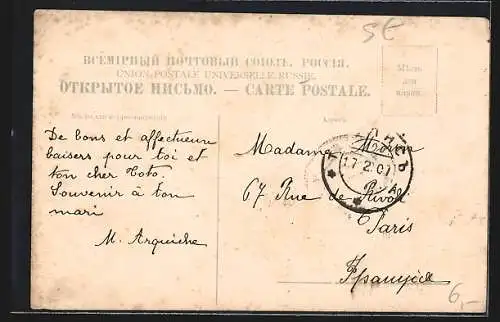 5E
ВСЕМІРНЫЙ ПОЧТОВЫЙ СОЮЗЪ. РОССІЯ.
UNION POSTALE UNIVERSELLE RUSSIE.
ОТКРЫТОЕ ПИСЬМО. — CARTE POSTALE.
Мѣсто
для
марки.
Адресъ.
De bons et affectueux
baisers pour toi et
ton cher Toto.
Souvenir à ton
mari
M. Arquiche
Madame
67 Rue de Rivoli
Paris
Франція
17.2.07
6,-